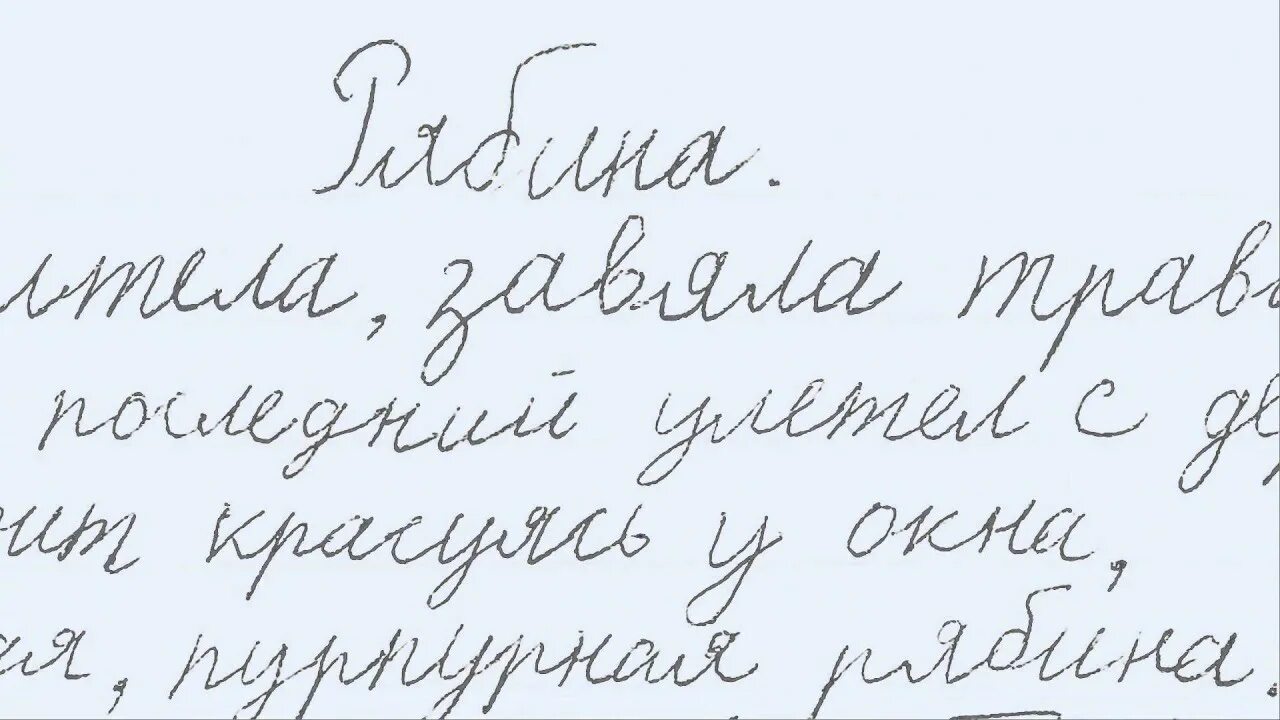 Рябина.
лтела, завяла трав
последний улетел с де
ит красуясь у окна,
ая, пурпурная рябина.